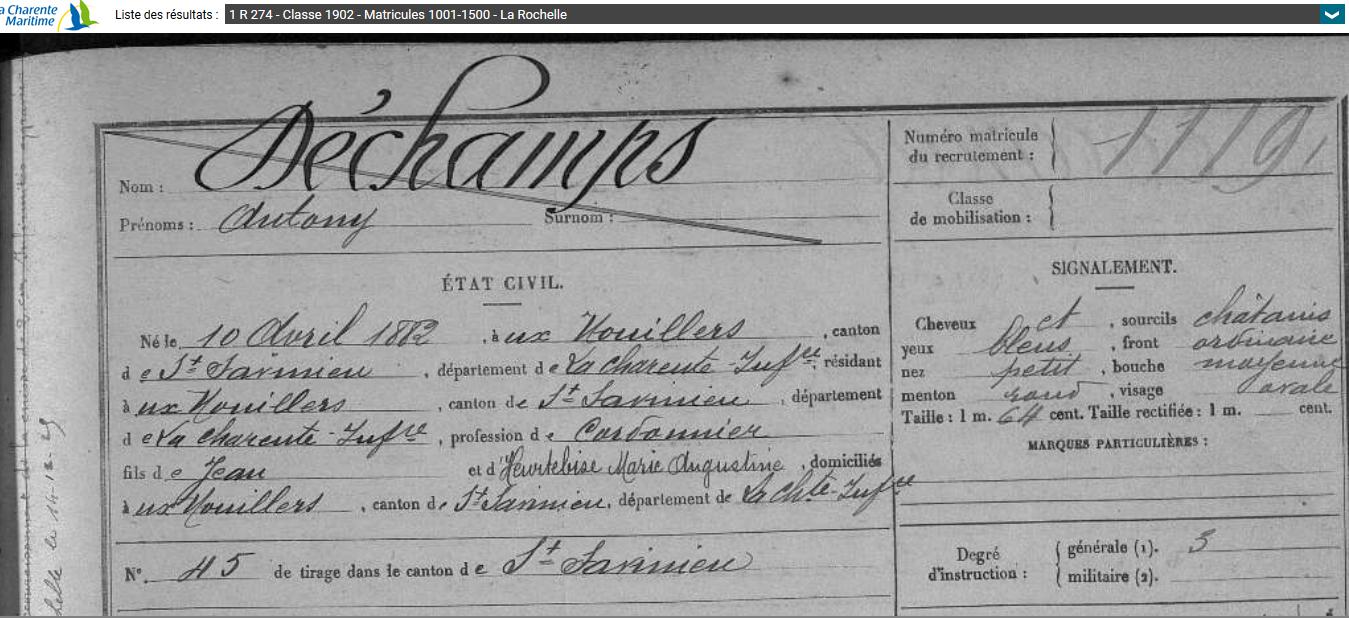 la Charente
Maritime
Liste des résultats : 1 R 274 - Classe 1902 - Matricules 1001-1500 - La Rochelle
Nom : Déchamps
Prénoms : Antony Surnom :
Numéro matricule
du recrutement : 1119
Classe
de mobilisation :
ÉTAT CIVIL.
Né le 10 Avril 1882, à ux Nouillers, canton
de St Savinien, département de La Charente-Infre, résidant
à ux Nouillers, canton de St Savinien, département
de La Charente-Infre, profession de Cordonnier
fils de Jean et d'Heurtebise Marie Augustine, domiciliés
à ux Nouillers, canton de St Savinien, département de La Chte-Infre
N° 45 de tirage dans le canton de St Savinien
SIGNALEMENT.
Cheveux et, sourcils châtains
yeux bleus, front ordinaire
nez petit, bouche moyenne
menton rond, visage ovale
Taille : 1 m. 64 cent. Taille rectifiée : 1 m. cent.
MARQUES PARTICULIÈRES :
Degré
d'instruction :
générale (1). 3
militaire (2).